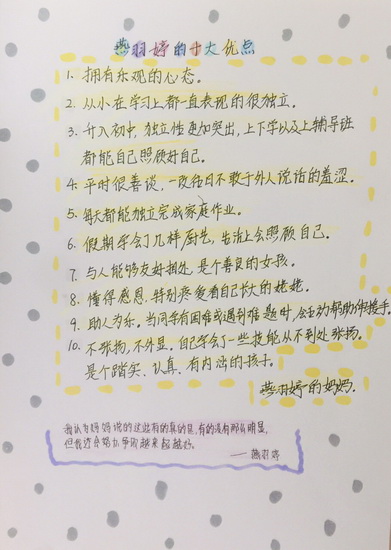 燕羽婷的十大优点
1. 拥有乐观的心态。
2. 从小在学习上都一直表现的很独立。
3. 升入初中,独立性更加突出,上下学以及上辅导班
都能自己照顾好自己。
4. 平时很善谈,一改往日不敢于外人说话的羞涩。
5. 每天都能独立完成家庭作业。
6. 假期学会了几样厨艺,生活上会照顾自己。
7. 与人能够友好相处,是个善良的女孩。
8. 懂得感恩,特别疼爱看自己长大的姥姥。
9. 助人为乐。当同学有困难或遇到难题时,会主动帮助伸援手。
10. 不张扬,不外显,自己学会了一些技能从不到处张扬。
是个踏实、认真、有内涵的孩子。
燕羽婷的妈妈.
我认为妈妈说的这些有的真的是,有的没有那么明显,
但我还会努力争取越来越好。
——燕羽婷